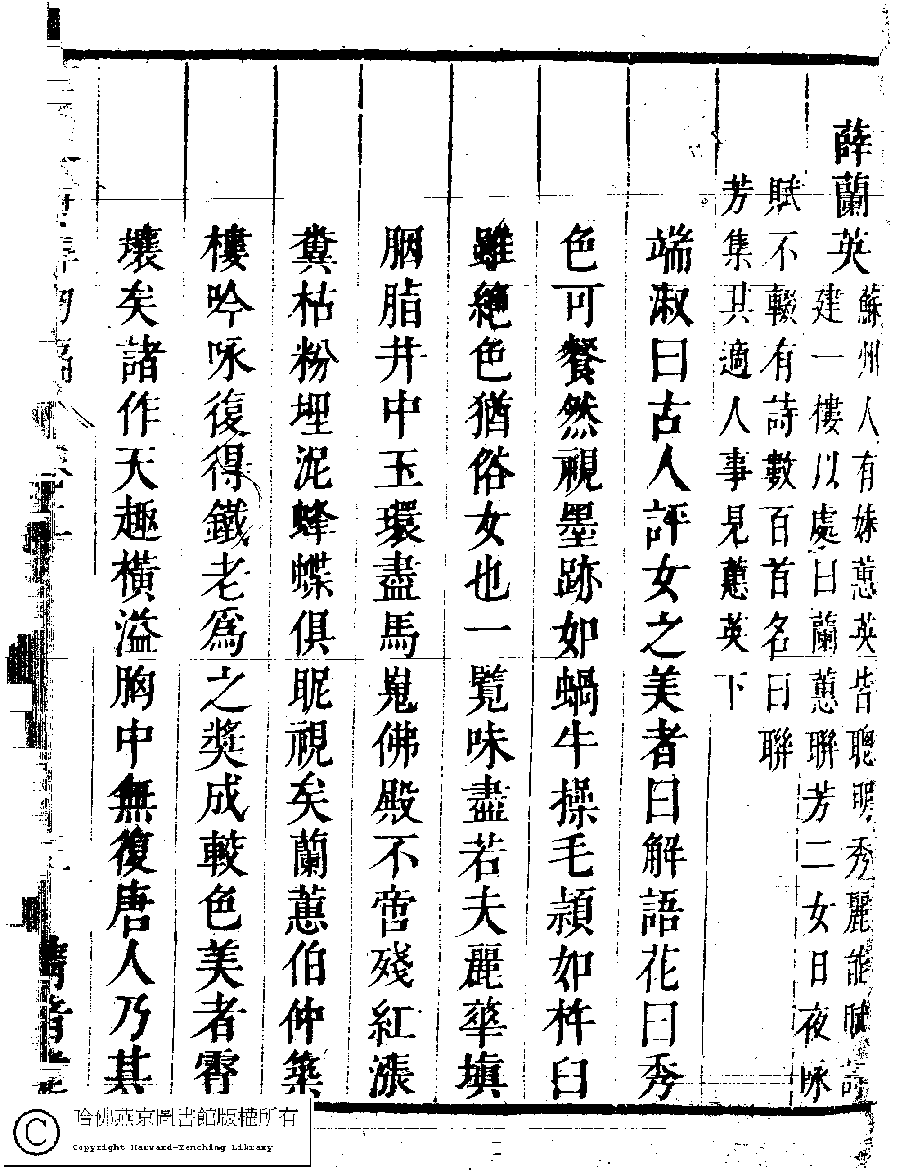 薛蘭英
蘇州人有妹蕙英皆聰明秀麗能賦詩
建一樓以處曰蘭蕙聯芳二女日夜咏
賦不輟有詩數百首名曰聯
芳集其適人事見蕙英下
端淑曰古人評女之美者曰解語花曰秀
色可餐然視墨跡如蝸牛操毛穎如杵臼
雖絕色猶俗女也一覽味盡若夫麗華塡
胭脂井中玉環盡馬嵬佛殿不啻殘紅漲
糞枯粉埋泥蜂蝶俱眤視矣蘭蕙伯仲築
樓吟咏復得鐵老爲之奬成較色美者霄
壤矣諸作天趣橫溢胸中無復唐人乃其
哈佛燕京圖書館版權所有
Copyright Harvard-Yenching Library